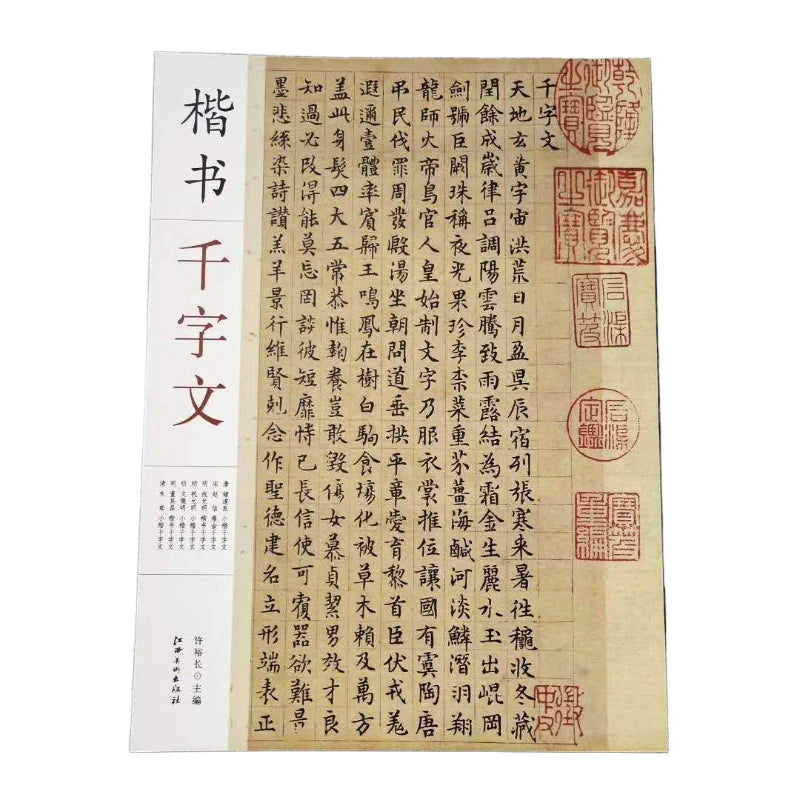 楷书
千字文
唐 褚遂良 小楷千字文
宋 赵佶 瘦金千字文
明 祝允明 楷书千字文
明 祝允明 小楷千字文
明 文徵明 小楷千字文
明 董其昌 楷书千字文
清 小楷千字文
许裕长◎主编
江西美术出版社
千字文
天地玄黃宇宙洪荒日月盈昃辰宿列張寒来暑往穐收冬藏
閏餘成歲律呂調陽雲騰致雨露結為霜金生麗水玉出崐岡
劍號巨闕珠稱夜光果珍李柰菜重芥薑海鹹河淡鱗潛羽翔
龍師火帝鳥官人皇始制文字乃服衣裳推位讓國有虞陶唐
弔民伐罪周發殷湯坐朝問道垂拱平章愛育黎首臣伏戎羌
遐邇壹體率賓歸王鳴鳳在樹白駒食場化被草木賴及萬方
盖此身髮四大五常恭惟鞠養豈敢毀傷女慕貞絜男效才良
知過必改得能莫忘罔談彼短靡恃己長信使可覆器欲難量
墨悲絲染詩讃羔羊景行維賢剋念作聖德建名立形端表正
乾隆御覽之寶
嘉慶御覽之寶